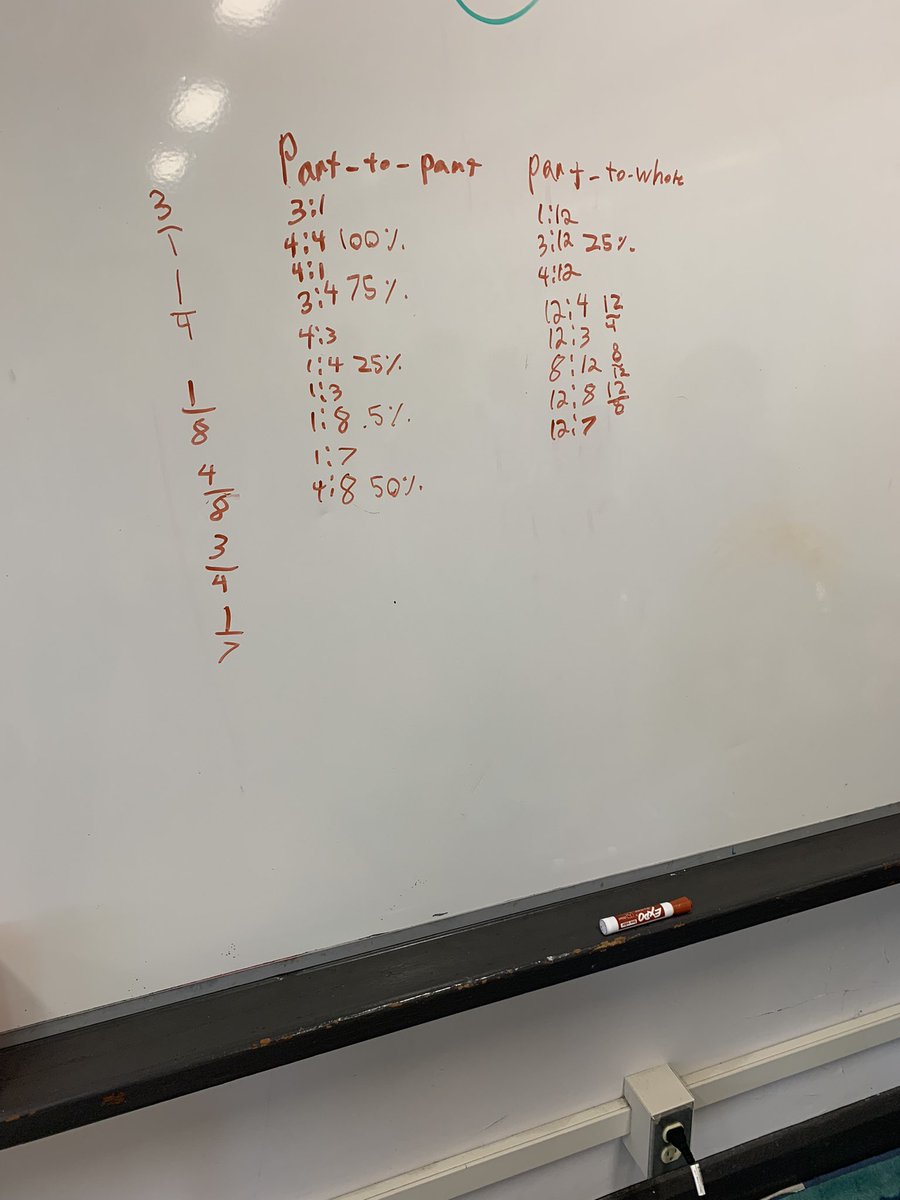 3/1
1/4
1/8
4/8
3/4
1/7
Part-to-part
3:1
4:4 100%
4:1
3:4 75%
4:3
1:4 25%
1:3
1:8 .5%
1:7
4:8 50%
part-to-whole
1:12
3:12 25%
4:12
12:4 12/4
12:3
8:12 8/12
12:8 12/8
12:7
EXPO